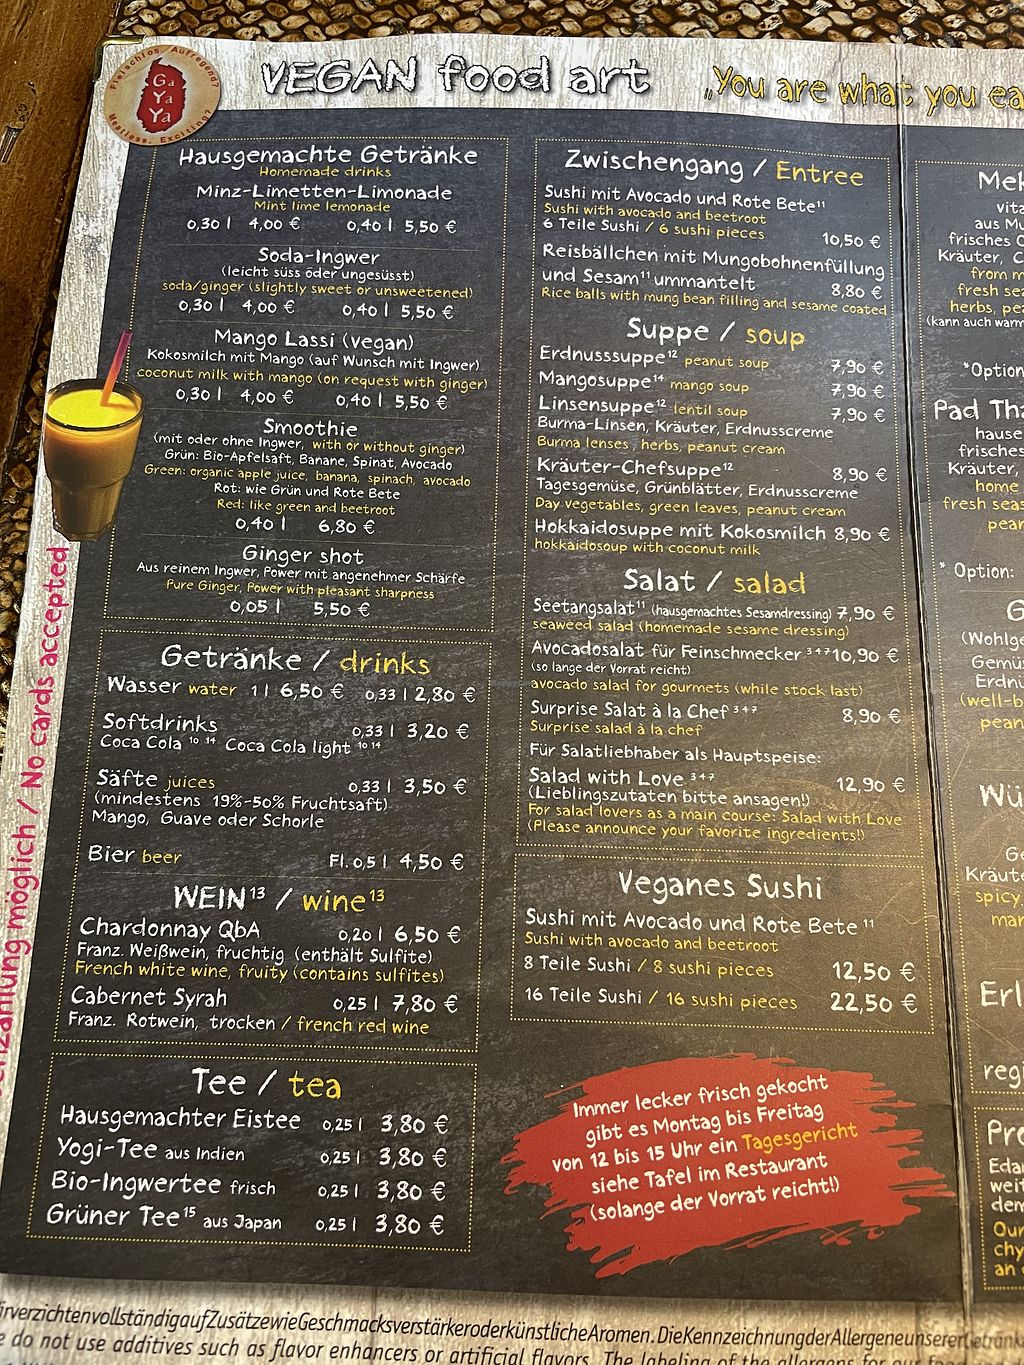 Fleischlos. Aufregend?
Ga
Ya
Ya
Meatless. Exciting?
VEGAN food art
„You are what you ea
Hausgemachte Getränke
Homemade drinks
Minz-Limetten-Limonade
Mint lime lemonade
0,30 l 4,00 € 0,40 l 5,50 €
Soda-Ingwer
(leicht süss oder ungesüsst)
soda/ginger (slightly sweet or unsweetened)
0,30 l 4,00 € 0,40 l 5,50 €
Mango Lassi (vegan)
Kokosmilch mit Mango (auf Wunsch mit Ingwer)
coconut milk with mango (on request with ginger)
0,30 l 4,00 € 0,40 l 5,50 €
Smoothie
(mit oder ohne Ingwer, with or without ginger)
Grün: Bio-Apfelsaft, Banane, Spinat, Avocado
Green: organic apple juice, banana, spinach, avocado
Rot: wie Grün und Rote Bete
Red: like green and beetroot
0,40 l 6,80 €
Ginger shot
Aus reinem Ingwer, Power mit angenehmer Schärfe
Pure Ginger, Power with pleasant sharpness
0,05 l 5,50 €
Getränke / drinks
Wasser water 1 l 6,50 € 0,33 l 2,80 €
Softdrinks 0,33 l 3,20 €
Coca Cola 10 14 Coca Cola light 10 14
Säfte juices 0,33 l 3,50 €
(mindestens 19%-50% Fruchtsaft)
Mango, Guave oder Schorle
Bier beer Fl. 0,5 l 4,50 €
WEIN¹³ / wine¹³
Chardonnay QbA 0,20 l 6,50 €
Franz. Weißwein, fruchtig (enthält Sulfite)
French white wine, fruity (contains sulfites)
Cabernet Syrah 0,25 l 7,80 €
Franz. Rotwein, trocken / french red wine
Tee / tea
Hausgemachter Eistee 0,25 l 3,80 €
Yogi-Tee aus Indien 0,25 l 3,80 €
Bio-Ingwertee frisch 0,25 l 3,80 €
Grüner Tee¹⁵ aus Japan 0,25 l 3,80 €
Zwischengang / Entree
Sushi mit Avocado und Rote Bete¹¹
Sushi with avocado and beetroot
6 Teile Sushi / 6 sushi pieces 10,50 €
Reisbällchen mit Mungobohnenfüllung
und Sesam¹¹ ummantelt 8,80 €
Rice balls with mung bean filling and sesame coated
Suppe / soup
Erdnusssuppe¹² peanut soup 7,90 €
Mangosuppe¹⁴ mango soup 7,90 €
Linsensuppe¹² lentil soup 7,90 €
Burma-Linsen, Kräuter, Erdnusscreme
Burma lenses, herbs, peanut cream
Kräuter-Chefsuppe¹² 8,90 €
Tagesgemüse, Grünblätter, Erdnusscreme
Day vegetables, green leaves, peanut cream
Hokkaidosuppe mit Kokosmilch 8,90 €
hokkaidosoup with coconut milk
Salat / salad
Seetangsalat¹¹ (hausgemachtes Sesamdressing) 7,90 €
seaweed salad (homemade sesame dressing)
Avocadosalat für Feinschmecker 3 4 7 10,90 €
(so lange der Vorrat reicht)
avocado salad for gourmets (while stock last)
Surprise Salat à la Chef 3 4 7 8,90 €
Surprise salad à la chef
Für Salatliebhaber als Hauptspeise:
Salad with Love 3 4 7 12,90 €
(Lieblingszutaten bitte ansagen!)
For salad lovers as a main course: Salad with Love
(Please announce your favorite ingredients!)
Veganes Sushi
Sushi mit Avocado und Rote Bete ¹¹
Sushi with avocado and beetroot
8 Teile Sushi / 8 sushi pieces 12,50 €
16 Teile Sushi / 16 sushi pieces 22,50 €
Immer lecker frisch gekocht
gibt es Montag bis Freitag
von 12 bis 15 Uhr ein Tagesgericht
siehe Tafel im Restaurant
(solange der Vorrat reicht!)
Mek
vita
aus Mu
frisches C
Kräuter, C
from m
fresh sea
herbs, pea
(kann auch warm
*Option
Pad Tha
hause
frisches
Kräuter,
home
fresh seas
pear
* Option:
G
(Wohlge
Gemüs
Erdnü
(well-b
pean
Wü
Ge
Kräute
spicy
man
Erl
regi
Pro
Edam
weit
dem
Our
chy
an
enzahlung möglich / No cards accepted
irverzichtenvollständigaufZusätzewieGeschmacksverstärkeroderkünstlicheAromen.DieKennzeichnungderAllergeneunsererGetränk
e do not use additives such as flavor enhancers or artificial flavors. The labeling of the allergens for